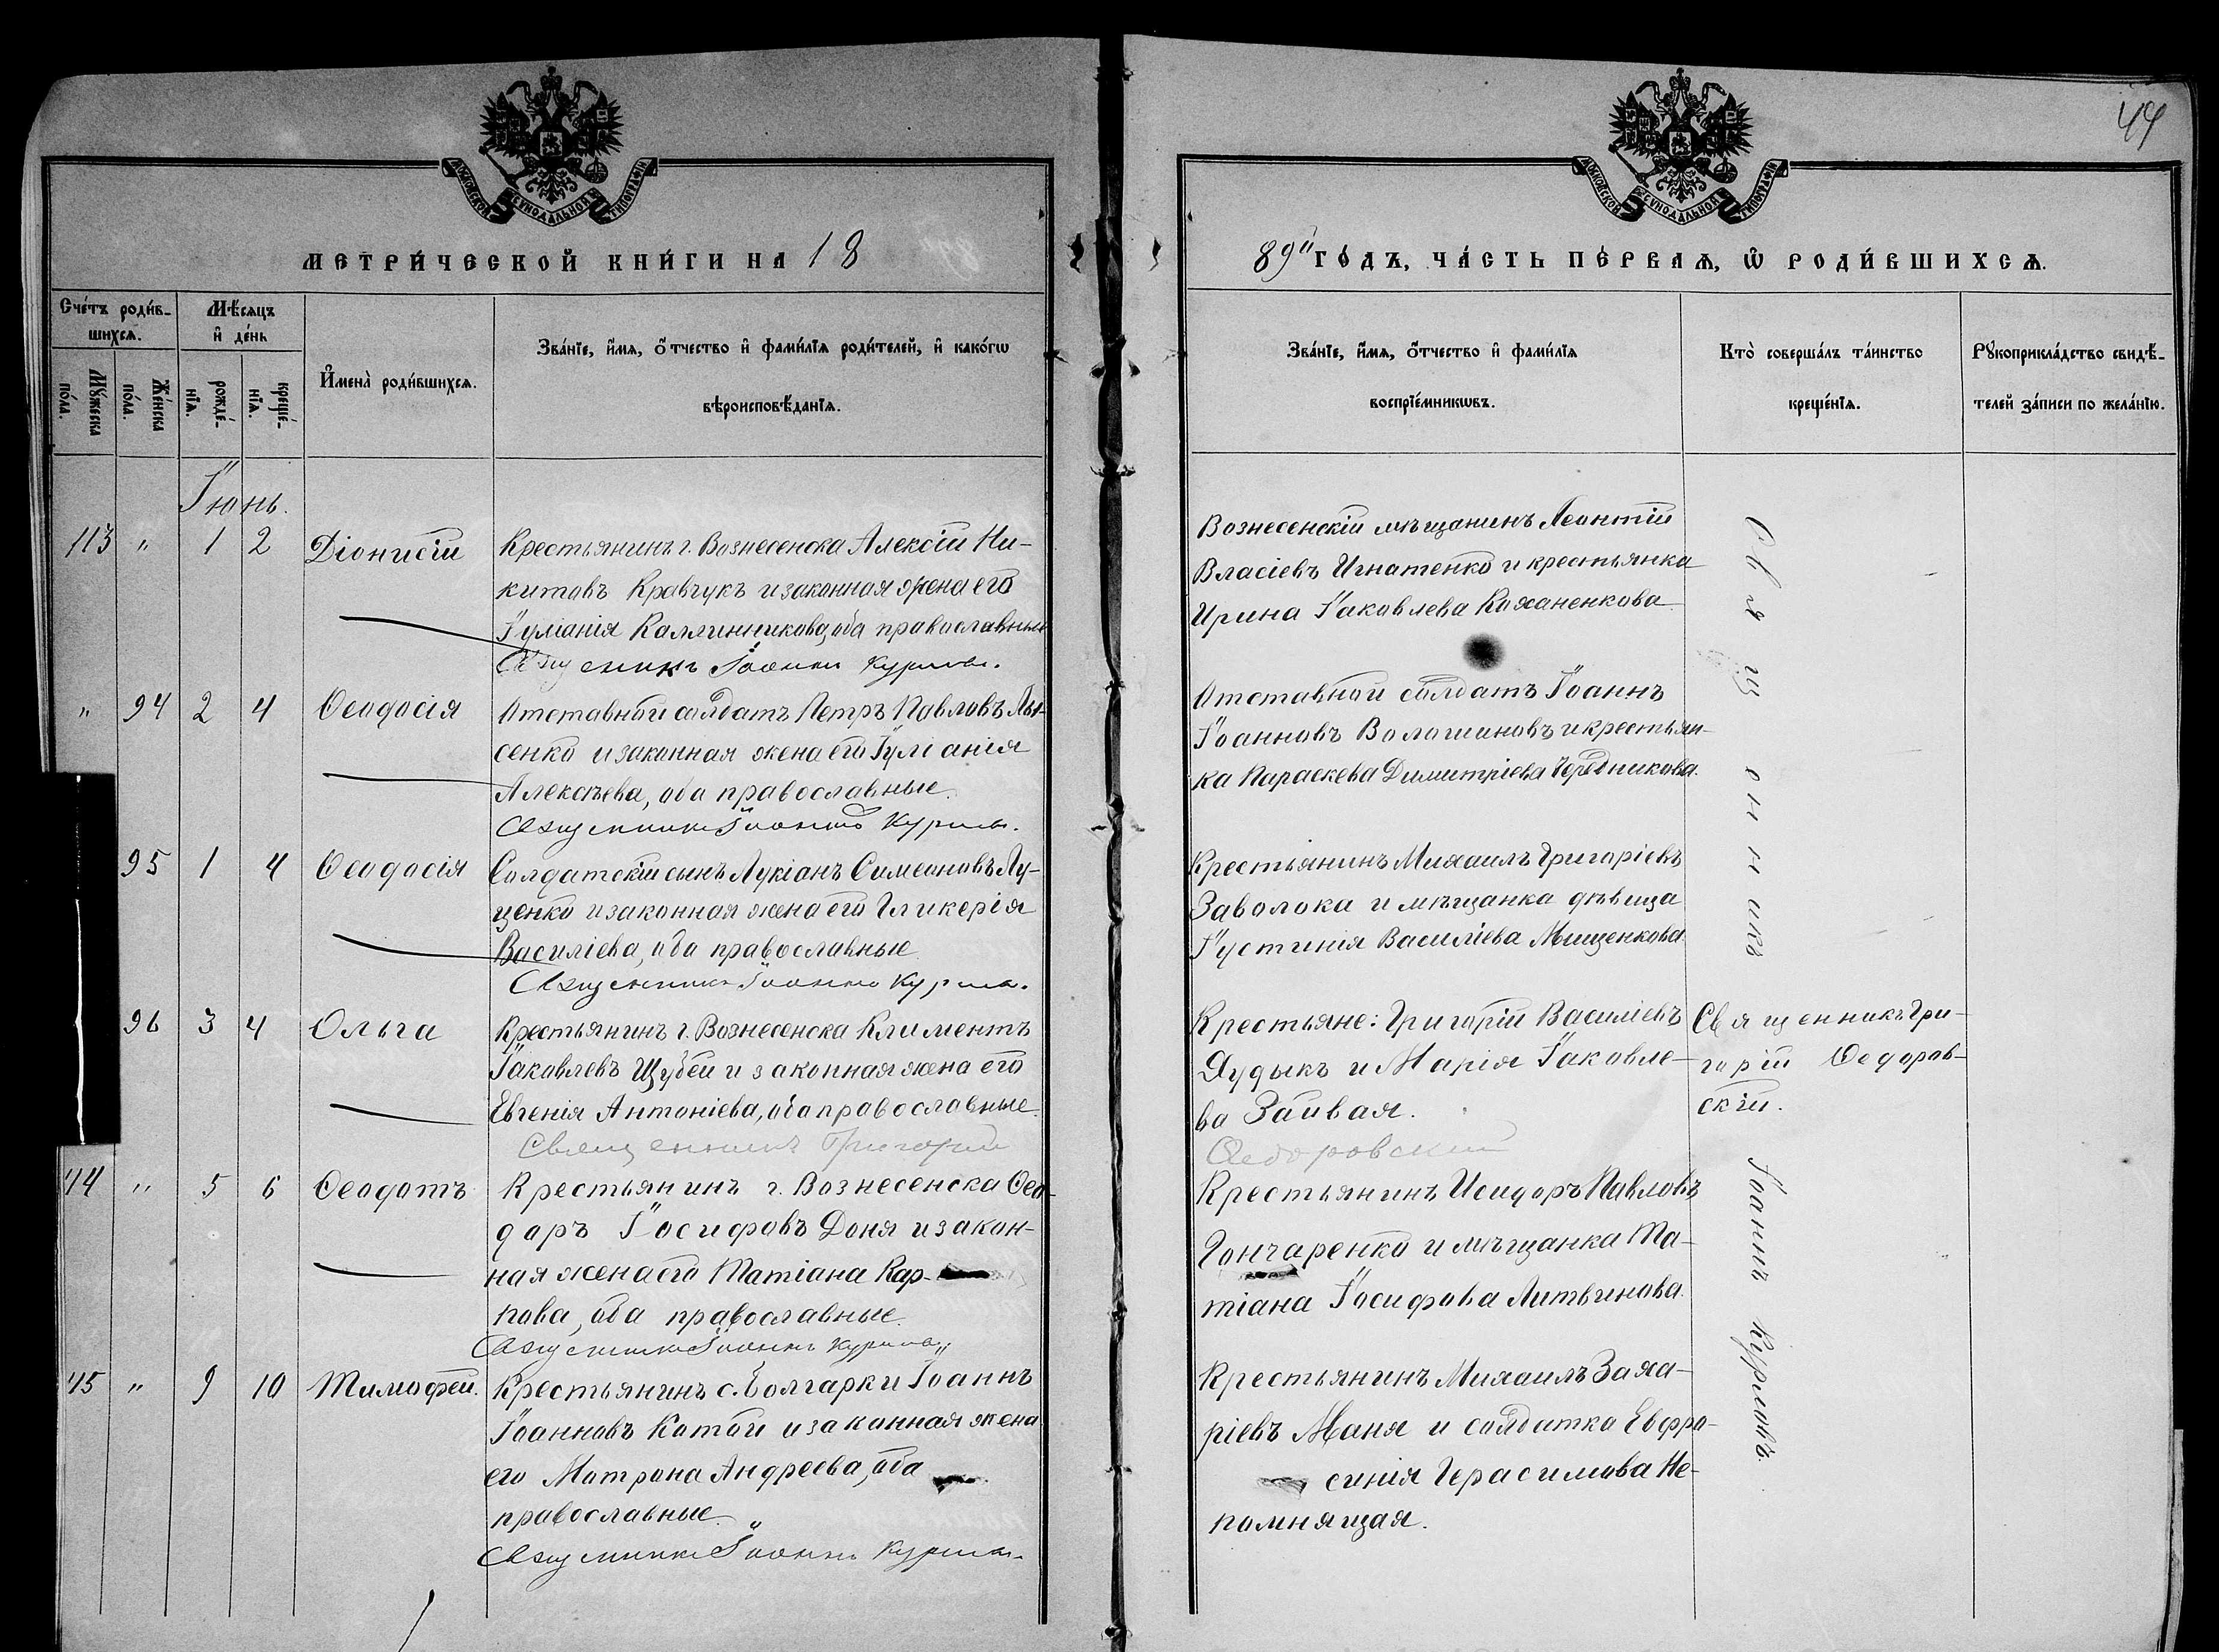 44
МОСКОВСКОЙ СѴНОДАЛЬНОЙ ТИПОГРАФІИ
МОСКОВСКОЙ СѴНОДАЛЬНОЙ ТИПОГРАФІИ
МЕТРИ́ЧЕСКОЙ КНИ́ГИ НА 18
89й ГО́ДЪ, ЧА́СТЬ ПЕ́РВАѦ, Ѡ РОДИ́ВШИХСѦ.
Сче́тъ роди́в-
шихсѧ.
Мꙋ́жеска
по́ла.
Же́нска
по́ла.
Мѣ́сѧцъ
и҆ де́нь
рожде́-
нїѧ.
креще́-
нїѧ.
И҆мена̀ роди́вшихсѧ.
Зва́нїе, и҆́мѧ, ѻ҆́тчество и҆ фами́лїѧ роди́телей, и҆ како́гѡ
вѣроисповѣ́данїѧ.
Зва́нїе, и҆́мѧ, ѻ҆́тчество и҆ фами́лїѧ
воспрїе́мникѡвъ.
Кто̀ соверша́лъ та́инство
креще́нїѧ.
Рꙋкоприкла́дство свидѣ́-
телей за́писи по жела́нїю.
Іюнь.
113 " 1 2 Діонисій
Крестьянинъ г. Вознесенска Алексій Ни-
китовъ Кравчукъ и законная жена его
Іуліанія Каллинникова, оба православные
Священникъ Іоаннъ Куриловъ.
Вознесенскій мѣщанинъ Леонтій
Власіевъ Игнатенко и крестьянка
Ирина Іаковлева Коханенкова
" 94 2 4 Ѳеодосія
Отставной солдатъ Петръ Павловъ Лы-
сенко и законная жена его Іуліанія
Алексѣева, оба православные.
Священникъ Іоаннъ Куриловъ.
Отставной солдатъ Іоаннъ
Іоанновъ Волошиновъ и крестьян-
ка Параскева Димитріева Чередникова.
95 1 4 Ѳеодосія
Солдатскій сынъ Лукіанъ Симеоновъ Лу-
ценко и законная жена его Гликерія
Василіева, оба православные
Священникъ Іоаннъ Куриловъ.
Крестьянинъ Михаилъ Григоріевъ
Заволока и мѣщанка дѣвица
Іустинія Василіева Мищенкова
96 3 4 Ольга
Крестьянинъ г. Вознесенска Климентъ
Іаковлевъ Щубей и законная жена его
Евгенія Антоніева, оба православные.
Священникъ Григорій
Крестьяне: Григорій Василіевъ
Дудыкъ и Марія Іаковле-
ва Заивая.
Ѳедоровскій
Священникъ Гри-
горій Ѳедоров-
скій.
114 " 5 6 Ѳеодотъ
Крестьянинъ г. Вознесенска Ѳео-
доръ Іосифовъ Доня и закон-
ная жена его Татіана Кар-
пова, оба православные.
Священникъ Іоаннъ Куриловъ
Крестьянинъ Исидоръ Павловъ
Гончаренко и мѣщанка Та-
тіана Іосифова Литвинова.
115 " 9 10 Тимофей.
Крестьянинъ с. Болгарки Іоаннъ
Іоанновъ Катой и законная жена
его Матрона Андреева, оба
православные.
Священникъ Іоаннъ Куриловъ.
Крестьянинъ Михаилъ Заха-
ріевъ Маня и солдатка Евфро-
синія Герасимова Не-
помнящая.
Священникъ
Іоаннъ Куриловъ.